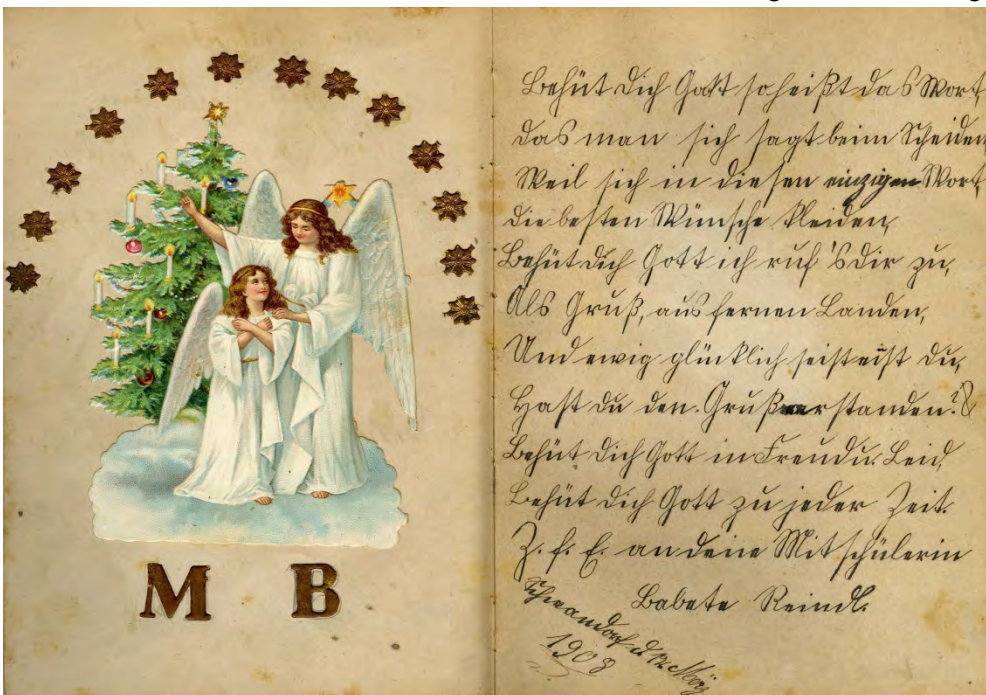 M B
Behüt Dich Gott so heißt das Wort,
das man sich sagt beim Scheiden
Weil sich in diesen einzigen Wort,
die besten Wünsche kleiden,
Behüt Dich Gott ich ruf's Dir zu,
Als Gruß, aus fernen Landen,
Und ewig glücklich seist Du,
Hast du den Gruß verstanden?
Behüt Dich Gott in Freud u. Leid,
Behüt Dich Gott zu jeder Zeit.
Z. f. E. an deine Mitschülerin
Babete Reindl.
Schwandorf d.
1908